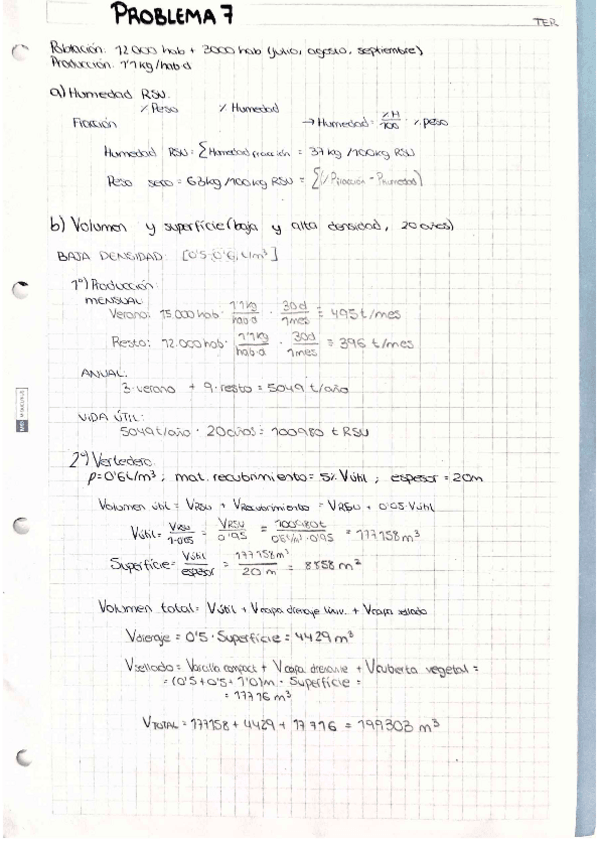 PROBLEMA 7
TER
Población: 12000 hab + 3000 hab (julio, agosto, septiembre)
Producción: 1'1 kg/hab d
a) Humedad RSU.
% Peso % Humedad
Fracción → Humedad = %H/100 · % peso
Humedad RSU = ∑ Humedad fracción = 37 kg/100kg RSU
Peso seco = 63 kg/100kg RSU = ∑(% Pfracción - Phumedad)
b) Volumen y superficie (baja y alta densidad, 20 años)
BAJA DENSIDAD: [0'5-0'6 t/m³]
1º) Producción:
MENSUAL:
Verano: 15.000 hab · 1'1kg/hab·d · 30d/1mes = 495 t/mes
Resto: 12.000 hab · 1'1kg/hab·d · 30d/1mes = 396 t/mes
ANUAL:
3·verano + 9·resto = 5049 t/año
VIDA ÚTIL:
5049 t/año · 20 años = 100980 t RSU
2º) Vertedero.
ρ=0'6 t/m³ ; mat. recubrimiento = 5% Vútil ; espesor = 20m
Volumen útil = VRSU + VRecubrimiento = VRSU + 0'05·Vútil
Vútil = VRSU/1-0'05 = VRSU/0'95 = 100980t/0'6 t/m³·0'95 = 177158 m³
Superficie = Vútil/espesor = 177158 m³/20 m = 8858 m²
Volumen total = Vútil + Vcapa drenaje lixiv. + Vcapa sellado
Vdrenaje = 0'5 · Superficie = 4429 m³
Vsellado = Varcilla compact + Vcapa drenante + Vcubierta vegetal =
= (0'5 + 0'5 + 1'0)m · Superficie =
= 17716 m³
VTOTAL = 177158 + 4429 + 17716 = 199303 m³